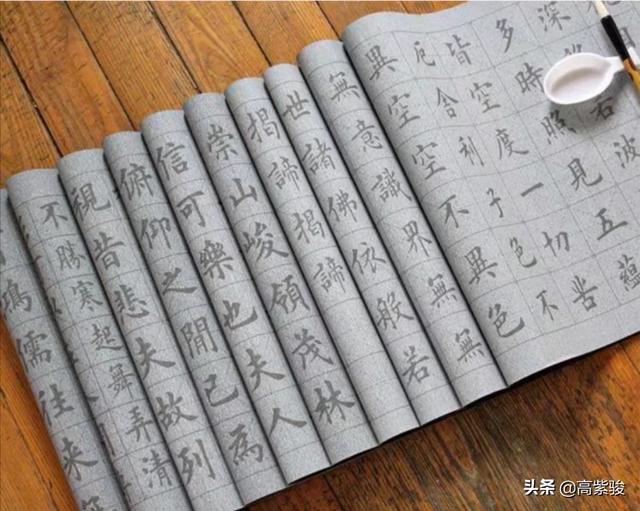 深
若波
多時照見五蘊
皆空度一切苦
厄舍利子色不
異空空不異色
無意識界無無
世諸佛依般若
揭諦揭諦
崇山峻領茂林
信可樂也夫人
俯仰之閒已為
視昔悲夫故列
不勝寒起舞弄清
鴻儒往來
头条 @高紫骏